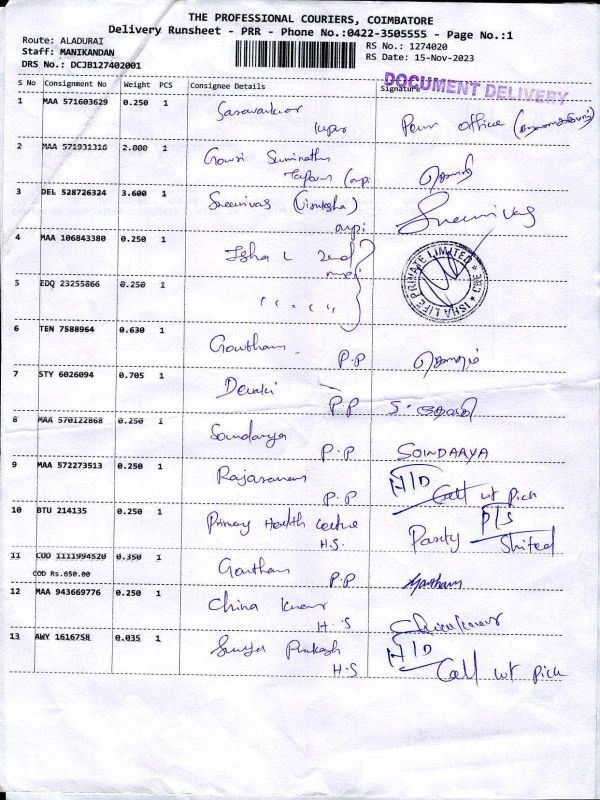 THE PROFESSIONAL COURIERS, COIMBATORE
Delivery Runsheet - PRR - Phone No.:0422-3505555 - Page No.:1
Route: ALADURAI
Staff: MANIKANDAN
DRS No.: DCJB127402001
RS No.: 1274020
RS Date: 15-Nov-2023
DOCUMENT DELIVERY
S No Consignment No Weight PCS Consignee Details Signature
1 MAA 571603629 0.250 1
2 MAA 571931316 2.000 1 Gowri
3 DEL 528726324 3.600 1 Sreenivas Sreenivas
4 MAA 106843380 0.250 1 Isha L 2nd
ISHA LIFE PRIVATE LIMITED ★ CBE ★
5 EDQ 23255866 0.250 1 " " " "
6 TEN 7588964 0.630 1 Gowtham
P.P
7 STY 6026094 0.705 1 Devaki
P.P
8 MAA 570122868 0.250 1 Soundarya
P.P SOINDARYA
9 MAA 572273513 0.250 1
H/D
P.P Call wt pick
10 BTU 214135 0.250 1 Primary Health Centre
P/S
H.S. Party Shifted
11 COD 1111994520 0.350 1 Gautham
COD Rs.650.00 P.P Gautham
12 MAA 943669776 0.250 1 China Kumar
H.S
13 AWY 1616758 0.035 1 Surya Prakash
H/D
H.S Call wt pick